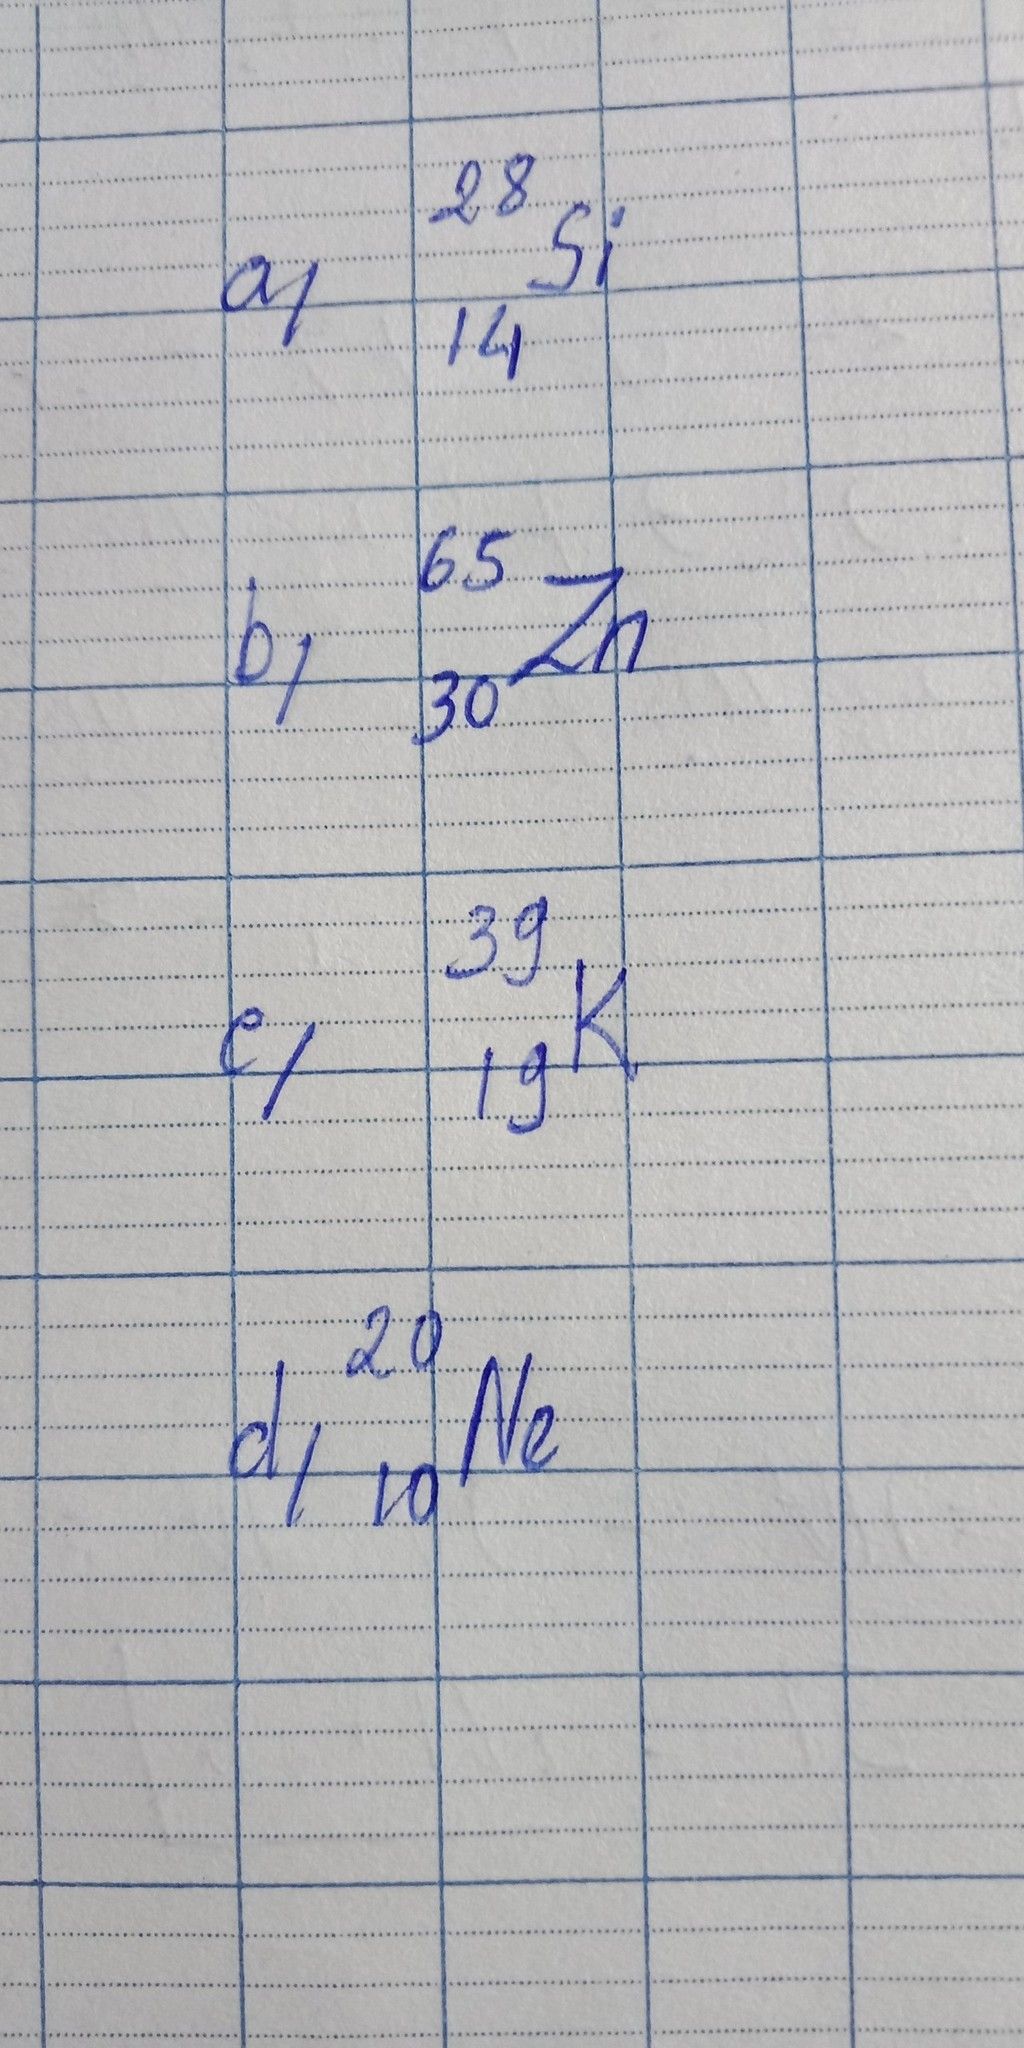 28
a) Si
14
65
b) Zn
30
39
c) K
19
20
d) Ne
10